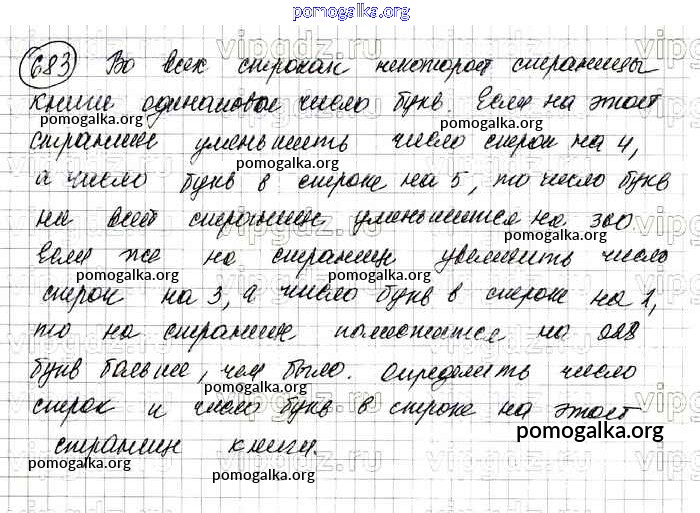 pomogalka.org
683 Во всех строках некоторой страницы
книги одинаковое число букв. Если на этой
pomogalka.org pomogalka.org
странице уменьшить число строк на 4,
pomogalka.org
а число букв в строке на 5, то число букв
pomogalka.org
на всей странице уменьшится на 360
pomogalka.org
Если же на странице увеличить число
pomogalka.org pomogalka.org
строк на 3, а число букв в строке на 2,
pomogalka.org
то на странице поместится на 228
букв больше, чем было. Определить число
pomogalka.org
строк и число букв в строке на этой
pomogalka.org
страниц книги.
pomogalka.org pomogalka.org